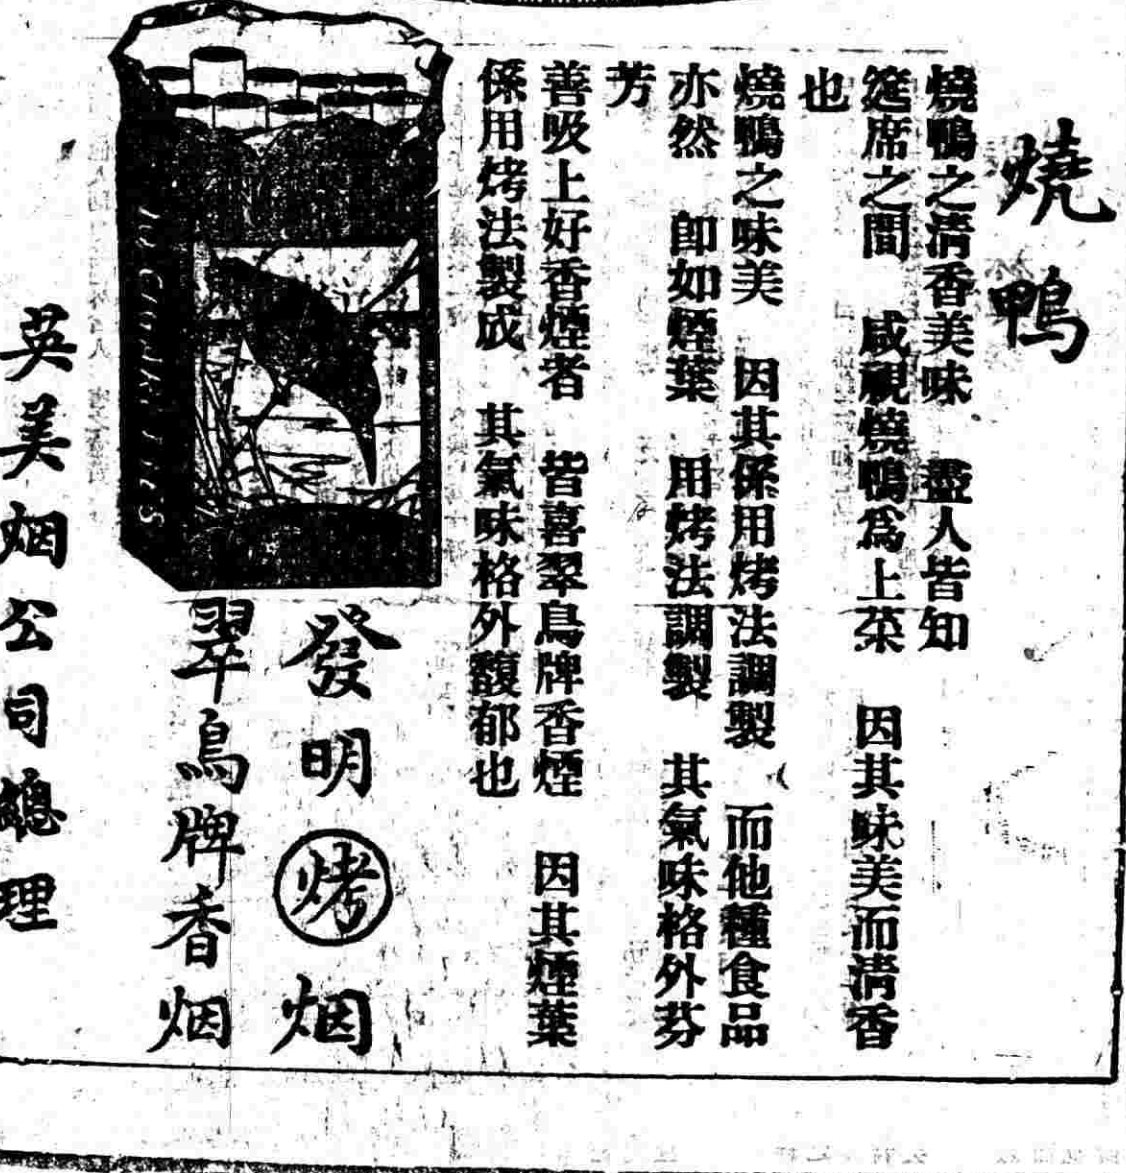 燒鴨
燒鴨之清香美味　盡人皆知
筵席之間　咸視燒鴨爲上菜　因其味美而清香
也
燒鴨之味美　因其係用烤法調製　而他種食品
亦然　卽如煙葉　用烤法調製　其氣味格外芬
芳
善吸上好香煙者　皆喜翠鳥牌香煙　因其煙葉
係用烤法製成　其氣味格外馥郁也
CIGARETTES
發明烤烟
翠鳥牌香烟
英美烟公司總理